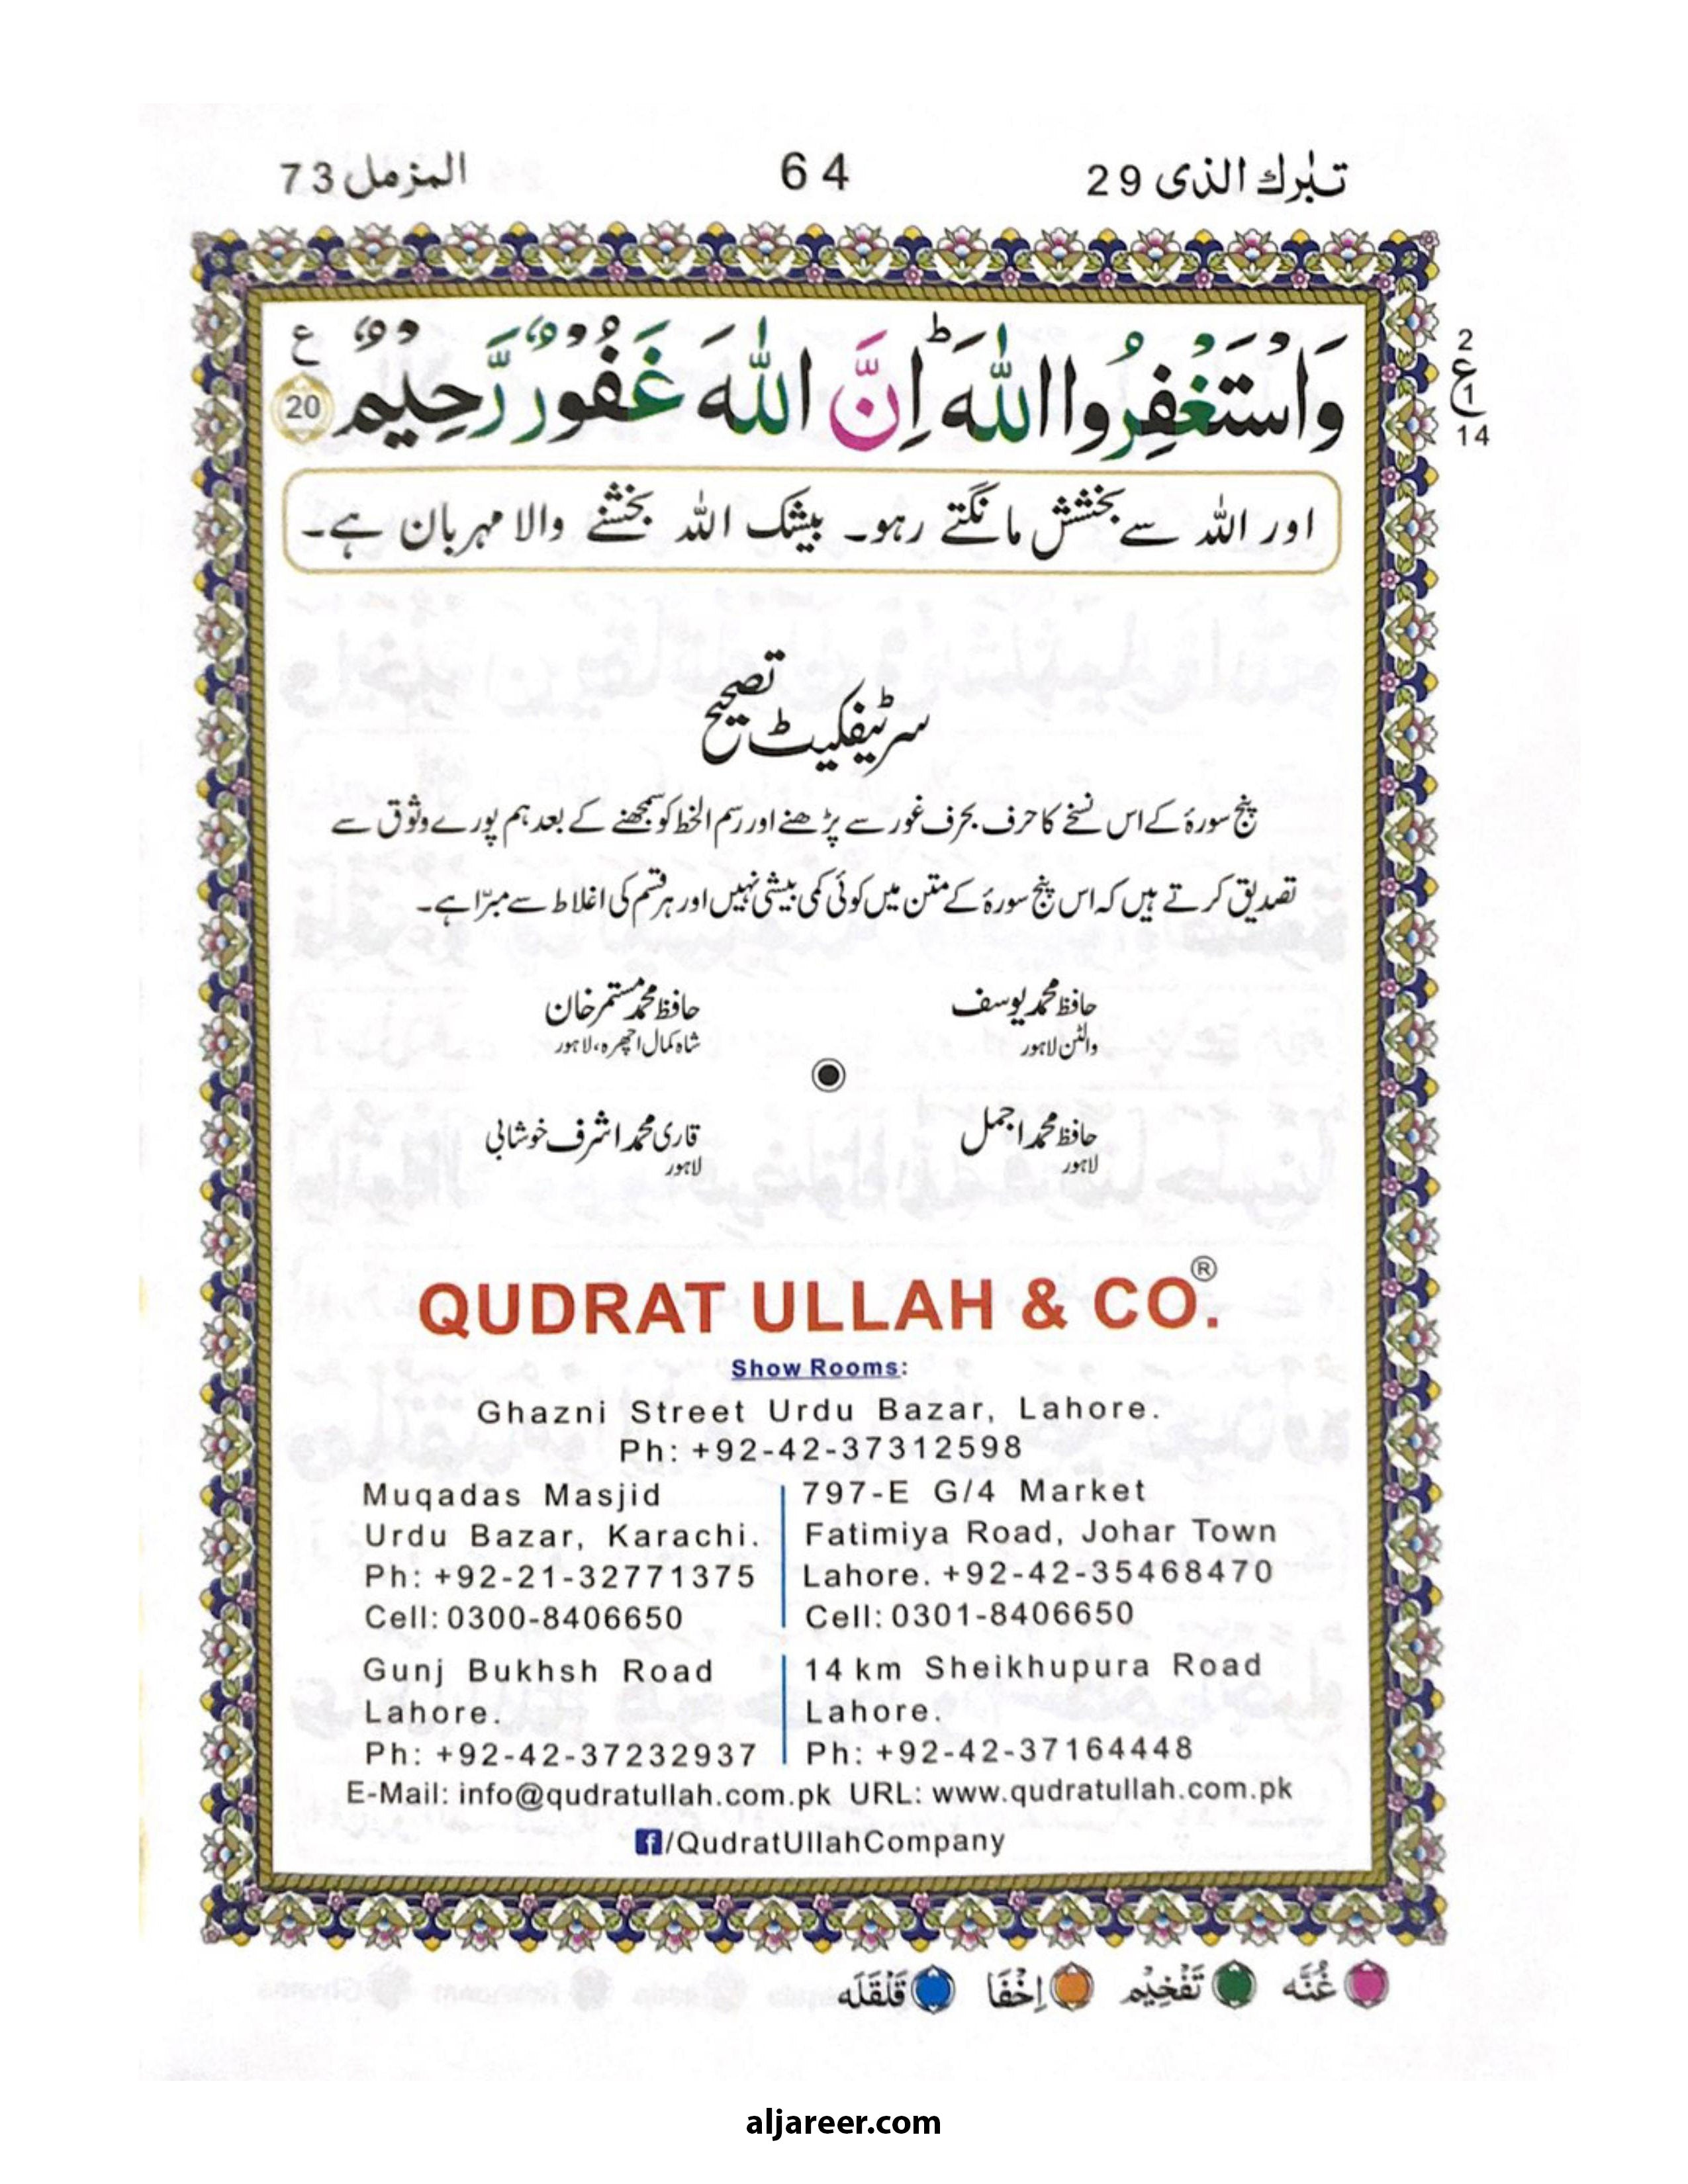 تبٰرك الذى 29
64
المزمل 73
وَاسْتَغْفِرُوا اللّٰهَ ؕ اِنَّ اللّٰهَ غَفُوْرٌ رَّحِيْمٌ 20 ع
2
ع
1
14
اور اللہ سے بخشش مانگتے رہو۔ بیشک اللہ بخشنے والا مہربان ہے۔
سرٹیفکیٹ تصحیح
پنج سورۂ کے اس نسخے کا حرف بحرف غور سے پڑھنے اور رسم الخط کو سمجھنے کے بعد ہم پورے وثوق سے
تصدیق کرتے ہیں کہ اس پنج سورۂ کے متن میں کوئی کمی بیشی نہیں اور ہر قسم کی اغلاط سے مبرّا ہے۔
حافظ محمد یوسف
والٹن لاہور
حافظ محمد مستمر خان
شاہ کمال اچھرہ، لاہور
حافظ محمد اجمل
لاہور
قاری محمد اشرف خوشابی
لاہور
QUDRAT ULLAH & CO.®
Show Rooms:
Ghazni Street Urdu Bazar, Lahore.
Ph: +92-42-37312598
Muqadas Masjid
Urdu Bazar, Karachi.
Ph: +92-21-32771375
Cell: 0300-8406650
797-E G/4 Market
Fatimiya Road, Johar Town
Lahore. +92-42-35468470
Cell: 0301-8406650
Gunj Bukhsh Road
Lahore.
Ph: +92-42-37232937
14 km Sheikhupura Road
Lahore.
Ph: +92-42-37164448
E-Mail: info@qudratullah.com.pk URL: www.qudratullah.com.pk
f/QudratUllahCompany
غُنَّه تَفْخِيْم اِخْفَا قَلْقَلَه
aljareer.com